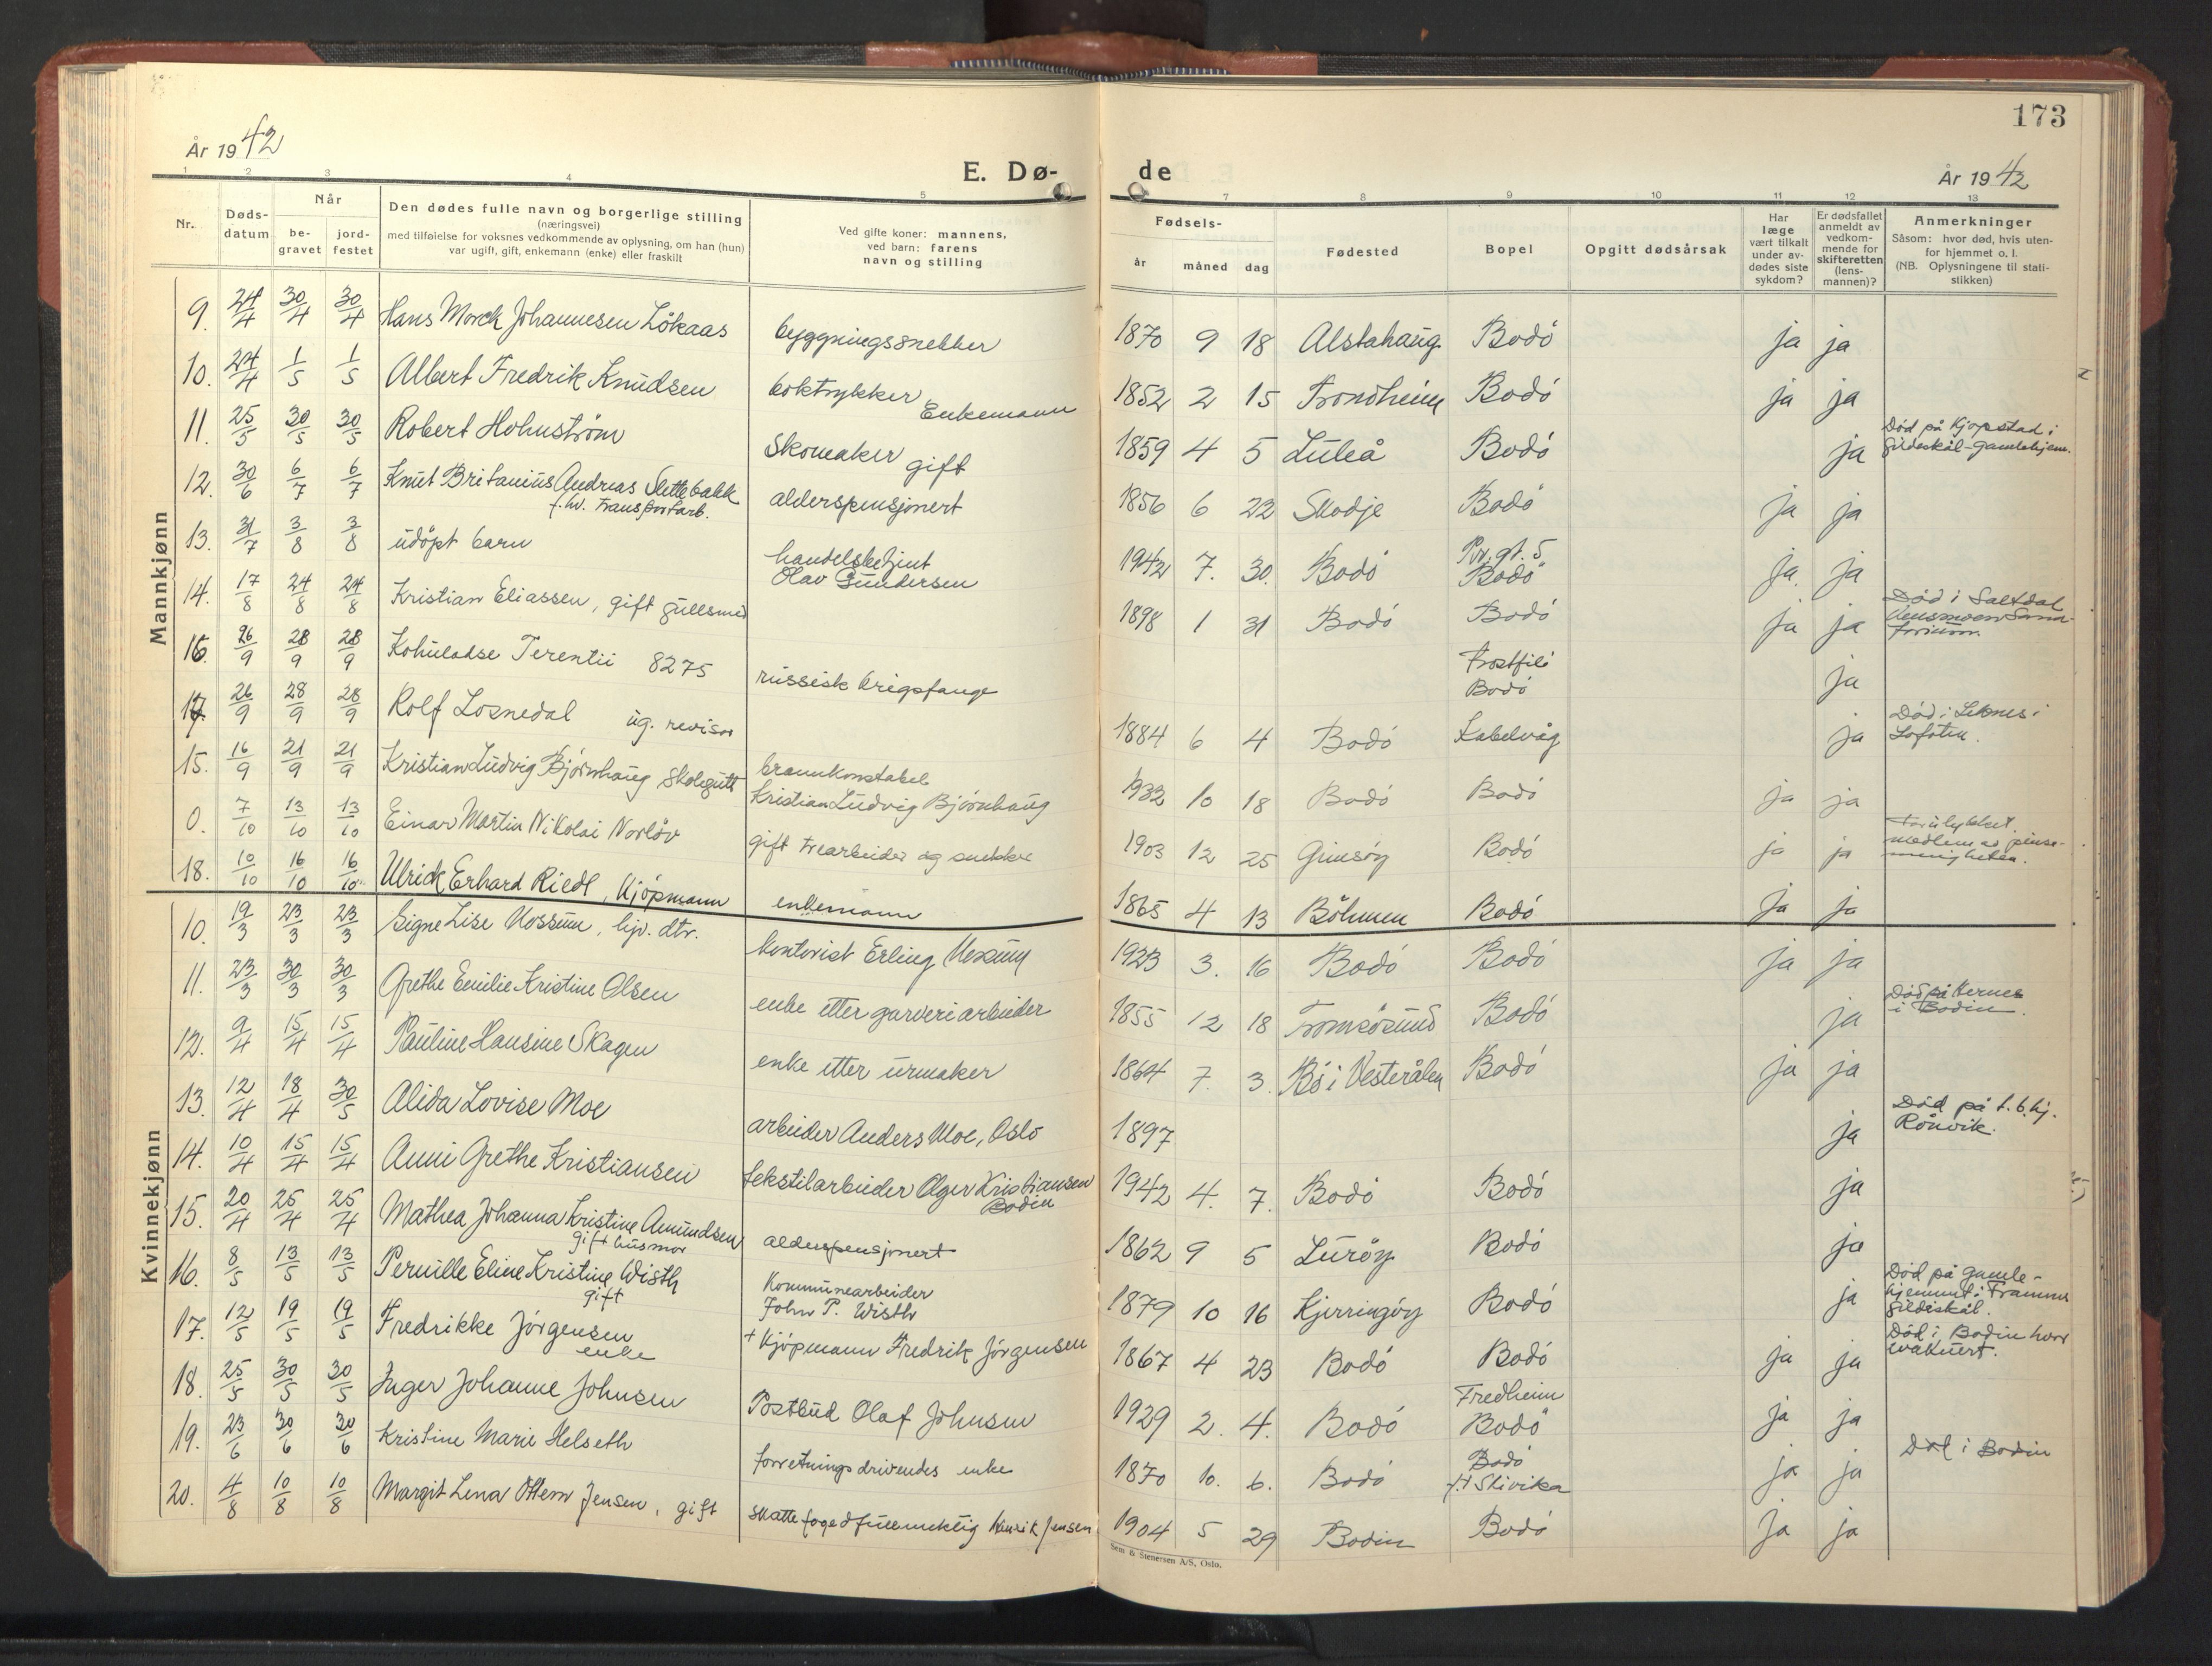 173
År 1942
E. Dø-
de
År 1942
1 2 3 4 5 7 8 9 10 11 12 13
Nr.
Døds-
datum
Når
be-
gravet
jord-
festet
Den dødes fulle navn og borgerlige stilling
(næringsvei)
med tilføielse for voksnes vedkommende av oplysning, om han (hun)
var ugift, gift, enkemann (enke) eller fraskilt
Ved gifte koner: mannens,
ved barn: farens
navn og stilling
Fødsels-
år måned dag
Fødested
Bopel
Opgitt dødsårsak
Har
læge
vært tilkalt
under av-
dødes siste
sykdom?
Er dødsfallet
anmeldt av
vedkom-
mende for
skifteretten
(lens-
mannen)?
Anmerkninger
Såsom: hvor død, hvis uten-
for hjemmet o. l.
(NB. Oplysningene til stati-
stikken)
Mannkjønn
9. 24/4 30/4 30/4 Hans Morck Johannesen Lökaas byggningssnekker 1870 9 18 Alstahaug Bodö ja ja
10. 24/4 1/5 1/5 Albert Fredrik Knudsen boktrykker Enkemann 1852 2 15 Trondheim Bodö ja ja
11. 25/5 30/5 30/5 Robert Holmström Skomaker gift 1859 4 5 Luleå Bodö ja Död på Kjopstad i
Gildeskål-gamlehjem.
12. 30/6 6/7 6/7 Knut Britanius Andreas Slettebakk alderspensjonert 1856 6 22 Skodje Bodö ja ja
f.hv. Transportarb.
13. 31/7 3/8 3/8 udöpt barn handelsbetjent
Olav Gundersen 1942 7. 30. Bodö Pr. gt. 5
Bodö ja ja
14. 17/8 24/8 24/8 Kristian Eliassen, gift gullsmed 1898 1 31 Bodö Bodö ja ja Död i Saltdal
Vensmoen Sana-
torium
16. 26/9 28/9 28/9 Kohuladse Terentii 8275 russisk krigsfange
Bodö ja
17. 26/9 28/9 28/9 Rolf Losnedal ug. revisor 1884 6 4 Bodö Kabelvåg ja Död i Leknes i
Lofoten.
15. 16/9 21/9 21/9 Kristian Ludvig Björnhaug skolegutt brannkonstabel
Kristian Ludvig Björnhaug 1932 10 18 Bodö Bodö ja ja
0. 7/10 13/10 13/10 Einar Martin Nikolai Norlöv gift Trearbeider og snekker 1903 12 25 Gimsöy Bodö ja ja Forulykket.
medlem av pinse-
menigheten.
18. 10/10 16/10 16/10 Ulrick Erhard Riedl, Kjöpmann enkemann 1865 4 13 Böhmen Bodö ja ja
Kvinnekjønn
10. 19/3 23/3 23/3 Signe Lise Mossum, hjv. dtr. kontorist Erling 1923 3. 16 Bodö Bodö ja ja
11. 23/3 30/3 30/3 Grethe Emilie Kristine Olsen enke etter garveriarbeider 1855 12 18 Tromsösund Bodö ja Död på Hernes
i Bodin.
12. 9/4 15/4 15/4 Pauline Hansine Skagen enke etter urmaker 1864 7. 3. Bö i Vesterålen Bodö ja ja
13. 12/4 18/4 30/5 Alida Lovise Moe arbeider Anders Moe, Oslo 1897 ja Död på s.b.hj.
Rönvik.
14. 10/4 15/4 15/4 Anni Grethe Kristiansen tekstilarbeider Olger Kristiansen
Bodin 1942 4. 7. Bodö Bodö ja
15. 20/4 25/4 25/4 Mathea Johanna Kristine Amundsen
gift husmor alderspensjonert 1862 9 5 Luröy Bodö ja
16. 8/5 13/5 13/5 Pernille Eline Kristine Wisth
gift Kommunearbeider
John P. Wisth 1879 10 16 Kjerringöy Bodö ja Död på gamle-
hjemmet i
Gildeskål.
17. 12/5 19/5 19/5 Fredrikke Jörgensen
enke + Kjöpmann Fredrik Jörgensen 1867 4 23 Bodö Bodö ja ja Död i Bodin hvor
evakuert.
18. 25/5 30/5 30/5 Inger Johanne Johnsen Postbud Olaf Johnsen 1929 2. 4. Bodö Fredheim
Bodö ja ja
19. 23/6 30/6 30/6 Kristine Marie Helseth forretningsdrivendes enke 1870 10. 6. Bodö Bodö
f.t Skivika ja ja Död i Bodin
20. 4/8 10/8 10/8 Margit Lena Ottem Jensen, gift skattefogedfullmektig Henrik Jensen 1904 5 29 Bodin Bodö ja ja
Sem & Stenersen A/S, Oslo.